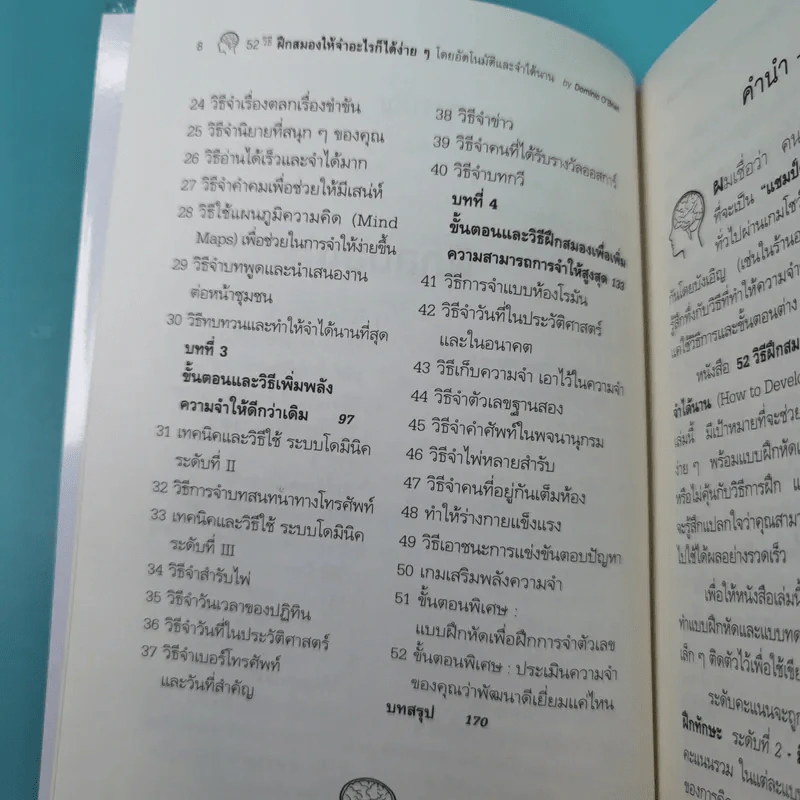 8 52 วิธี ฝึกสมองให้จำอะไรก็ได้ง่าย ๆ โดยอัตโนมัติและจำได้นาน by Dominic O'Brien
24 วิธีจำเรื่องตลกเรื่องขำขัน
25 วิธีจำนิยายที่สนุก ๆ ของคุณ
26 วิธีอ่านได้เร็วและจำได้มาก
27 วิธีจำคำคมเพื่อช่วยให้มีเสน่ห์
28 วิธีใช้แผนภูมิความคิด (Mind
Maps) เพื่อช่วยในการจำให้ง่ายขึ้น
29 วิธีจำบทพูดและนำเสนองาน
ต่อหน้าชุมชน
30 วิธีทบทวนและทำให้จำได้นานที่สุด
บทที่ 3
ขั้นตอนและวิธีเพิ่มพลัง
ความจำให้ดีกว่าเดิม 97
31 เทคนิคและวิธีใช้ ระบบโดมินิค
ระดับที่ II
32 วิธีการจำบทสนทนาทางโทรศัพท์
33 เทคนิคและวิธีใช้ ระบบโดมินิค
ระดับที่ III
34 วิธีจำสำรับไพ่
35 วิธีจำวันเวลาของปฏิทิน
36 วิธีจำวันที่ในประวัติศาสตร์
37 วิธีจำเบอร์โทรศัพท์
และวันที่สำคัญ
38 วิธีจำข่าว
39 วิธีจำคนที่ได้รับรางวัลออสการ์
40 วิธีจำบทกวี
บทที่ 4
ขั้นตอนและวิธีฝึกสมองเพื่อเพิ่ม
ความสามารถการจำให้สูงสุด 133
41 วิธีการจำแบบห้องโรมัน
42 วิธีจำวันที่ในประวัติศาสตร์
และในอนาคต
43 วิธีเก็บความจำ เอาไว้ในความจำ
44 วิธีจำตัวเลขฐานสอง
45 วิธีจำคำศัพท์ในพจนานุกรม
46 วิธีจำไพ่หลายสำรับ
47 วิธีจำคนที่อยู่กันเต็มห้อง
48 ทำให้ร่างกายแข็งแรง
49 วิธีเอาชนะการแข่งขันตอบปัญหา
50 เกมเสริมพลังความจำ
51 ขั้นตอนพิเศษ :
แบบฝึกหัดเพื่อฝึกการจำตัวเลข
52 ขั้นตอนพิเศษ : ประเมินความจำ
ของคุณว่าพัฒนาดีเยี่ยมแค่ไหน
บทสรุป 170
คำนำ
ผมเชื่อว่า คน
ที่จะเป็น "แชมป์
ทั่วไปผ่านเกมโชว์
กันโดยบังเอิญ (เช่นในร้าน
รู้สึกทึ่งกับวิธีที่ทำให้ความจำ
แค่ใช้วิธีการและขั้นตอนต่าง
หนังสือ 52 วิธีฝึกสม
จำได้นาน (How to Develo
เล่มนี้ มีเป้าหมายที่จะช่วย
ง่าย ๆ พร้อมแบบฝึกหัด
หรือไม่คุ้นกับวิธีการฝึก
จะรู้สึกแปลกใจว่าคุณสามา
ไปใช้ได้ผลอย่างรวดเร็ว
เพื่อให้หนังสือเล่มนี้
ทำแบบฝึกหัดและแบบทด
เล็ก ๆ ติดตัวไว้เพื่อใช้เขีย
ระดับคะแนนจะถูก
ฝึกทักษะ ระดับที่ 2 -
คะแนนรวม ในแต่ละแบบ